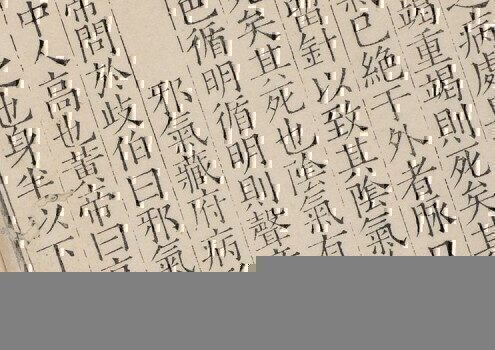 病處
竭重竭則死矣其
已絕于外者脈口
留針以致其陰氣
矣其死也陰氣有
色循明循明則聲
邪氣藏府病
帝問於歧伯曰邪氣
中人高也黃帝曰
也身半以下